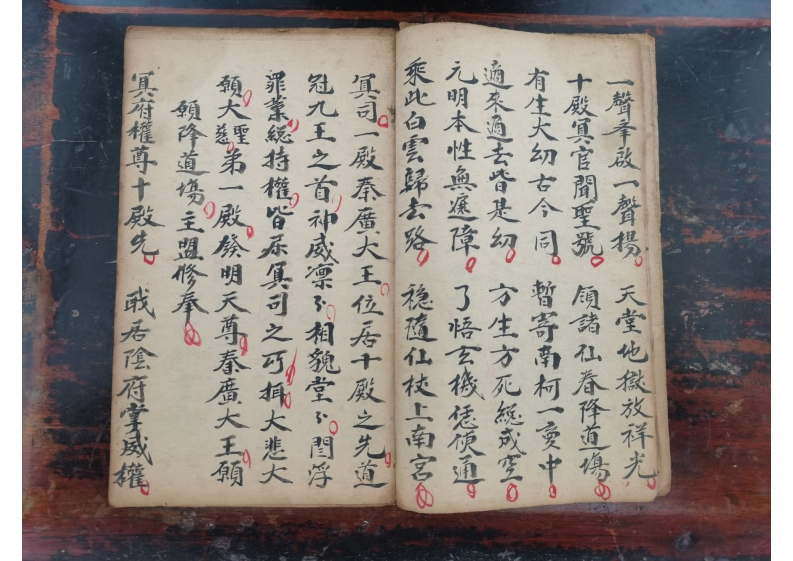 一聲奉啟一聲揚 天堂地獄放祥光
十殿冥官聞聖號 領諸仙眷降道場
有生大幻古今同 暫寄南柯一夢中
適來適去皆是幻 方生方死總成空
元明本性無遮障 了悟玄機恁便通
乘此白雲歸去路 穩隨仙杖上南宮
冥司一殿秦廣大王位居十殿之先道
冠九王之首神威凛〻相貌堂〻閻浮
罪業總持權皆居冥司之 大悲大
願大聖慈第一殿 明天尊秦廣大王願
願降道場主盟修奉
冥府權尊十殿先 戒居陰府掌威權